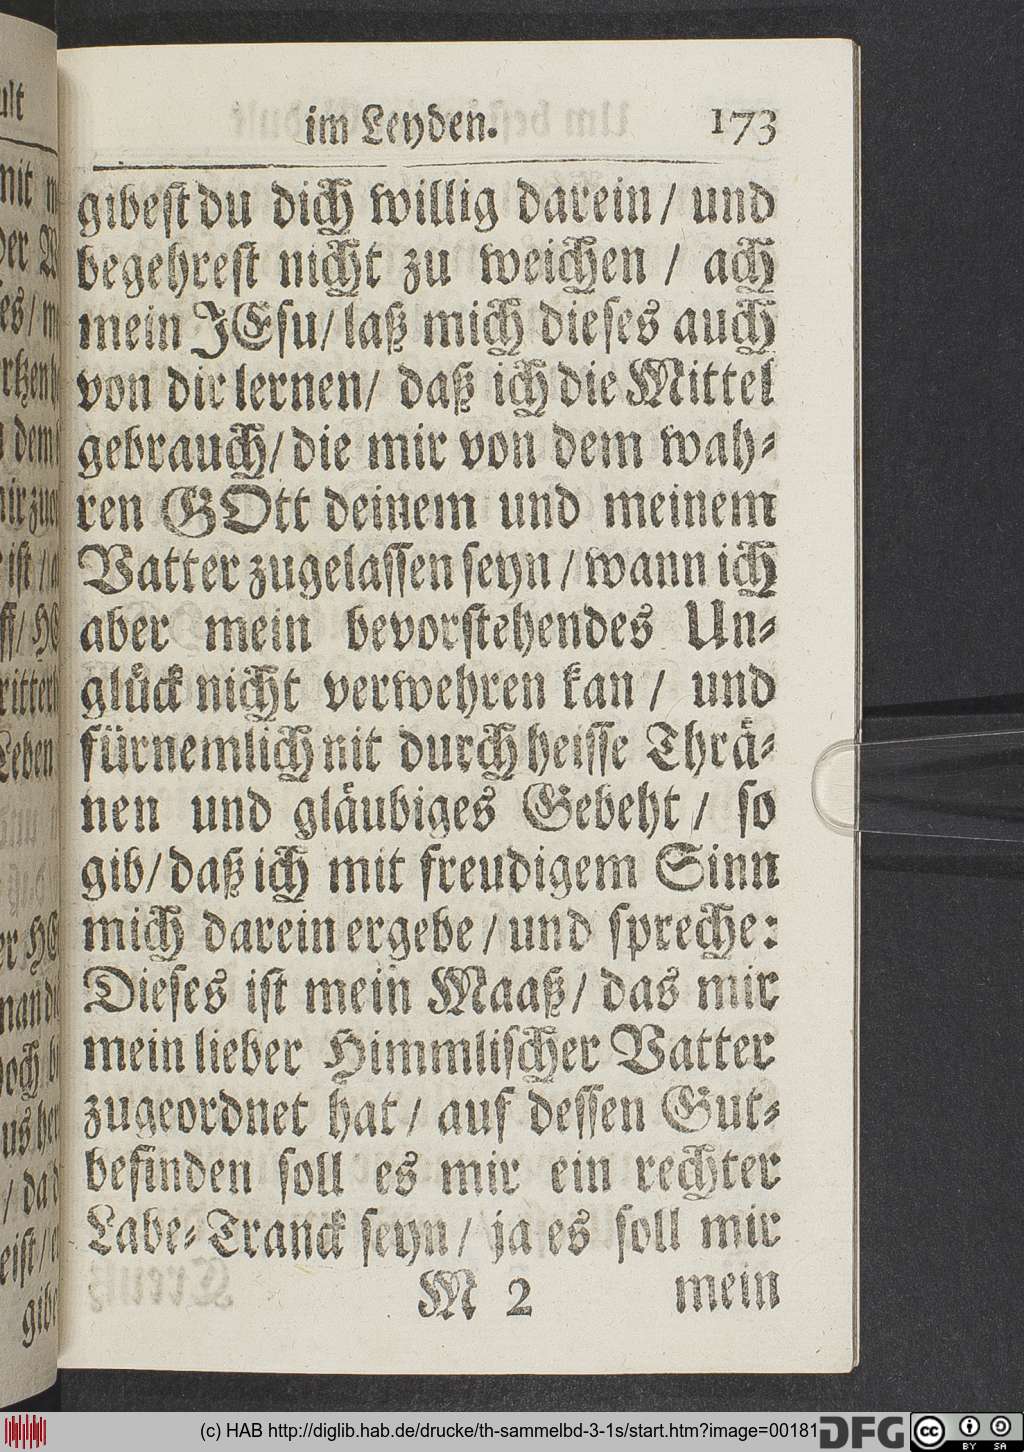 im Leyden. 173
gibest du dich willig darein / und
begehrest nicht zu weichen / ach
mein JEsu / laß mich dieses auch
von dir lernen / daß ich die Mittel
gebrauch / die mir von dem wah-
ren GOtt deinem und meinem
Vatter zugelassen seyn / wann ich
aber mein bevorstehendes Un-
glück nicht verwehren kan / und
fürnemlich nit durch heisse Thrä-
nen und gläubiges Gebeht / so
gib / daß ich mit freudigem Sinn
mich darein ergebe / und spreche:
Dieses ist mein Maaß / das mir
mein lieber Himmlischer Vatter
zugeordnet hat / auf dessen Gut-
befinden soll es mir ein rechter
Labe-Tranck seyn / ja es soll mir
M 2 mein
(c) HAB http://diglib.hab.de/drucke/th-sammelbd-3-1s/start.htm?image=00181
DFG
cc BY SA